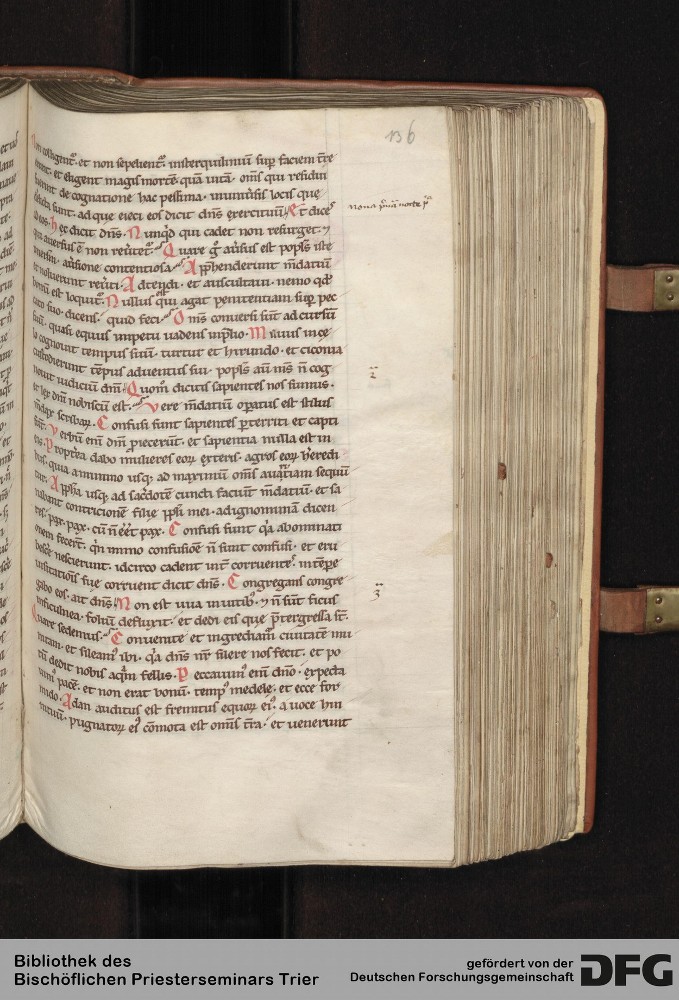 136
non colligentꝰ. et non sepelientꝰ. insterquilinium suꝑ faciem t̄re
erunt. et eligent magis mortē quā uitā. om̄s qui residui
fuerint de cognatione hac pessima. inuniūsis locis que
derelicta sunt. ad que eieci eos dicit dn̄s exercituū. Et dices
ad eos. hec dicit dn̄s. Nunqd qui cadet non resurget. ⁊
qui auersus ē non reūtetꝰ. Quare g̊ aūsus est popls iste
aūsione contentiosa. Apphenderunt m̄datiū
et noluerunt reūti. Adtendi. et auscultaui. nemo qd̄
bonū est loquitꝰ. Nullus est qui agat penitentiam suꝑ pec
cato suo. dicens. quid feci. Om̄s conuersi sunt ad cursū
suū. quasi equus impetu uadens inp̄lio. Miluus in ce
lo cognouit tempus suū. turtur et hyrundo. et ciconia
custodierunt tēpus aduentus sui. popls aū m̄s n̄ cog
nouit iudiciū dn̄i. Quom̄ dicitis sapientes nos sumus.
et lex dn̄i nobiscū est. Vere m̄datiū oꝑatus est stilus
m̄dax scribaꝝ. Confusi sunt sapientes ꝑterriti et capti
sunt. Verbū enī dn̄i ꝓiecerūt. et sapientia nulla est in
eis. Propterea dabo mulieres eoꝝ exteris. agros eoꝝ heredi
bus. quia a minimo usqꝫ ad maximū om̄s auaritiam sequū
tur. A ꝓpha usqꝫ ad sacdotē cuncti faciunt m̄datiū. et sa
nabant contricionē filie ppli mei. ad ignominiā dicen
tes. pax. pax. cū n̄ eēt pax. Confusi sunt qa abominati
onem fecert̄. qn̄ immo confusiōe n̄ sunt confusi. et eru
bescē nescierunt. idcirco cadent int̄ corruentes. in tēpꝛe
uisitationis sue corruent dicit dn̄s. Congregans congre
gabo eos. ait dn̄s. Non est uua inuitibꝰ. ⁊ n̄ sūt ficus
inficulnea. foliū defluxit. et dedi eis que p̄tergressa st̄.
Quare sedemus. Conuenite et ingrediam̄ ciuitatē mu
nitam. et sileam̄ ibi. qa dn̄s nr̄ silere nos fecit. et po
tū dedit nobis aqm̄ fellis. Peccauimꝰ enī dn̄o. expecta
uimꝰ pacē. et non erat bonū. tempꝰ medele. et ecce for
mido. Adan auditus est fremitus equoꝝ eiꝰ. a uoce hin
nituū. pugnatoꝝ eiꝰ cōmota est om̄is t̄ra. et uenerunt
2
3
Bibliothek des
Bischöflichen Priesterseminars Trier
gefördert von der
Deutschen Forschungsgemeinschaft
DFG